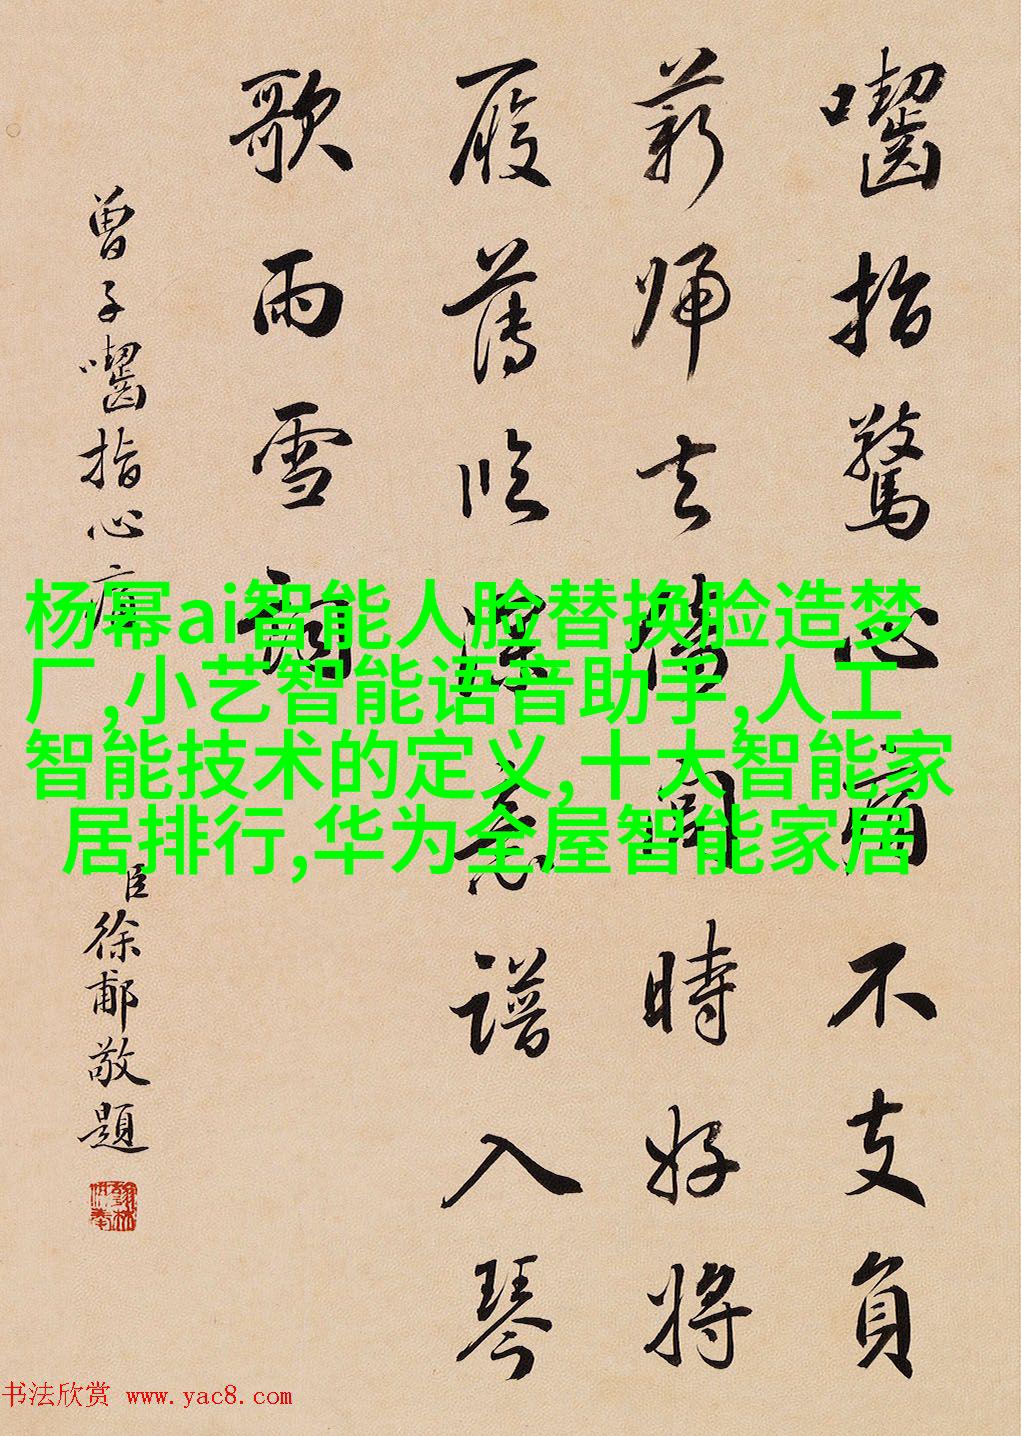 囓指驚心痛不支負
薪歸去惕聞時好將
履薄臨深意譜入琴
歌雨雪詞
曾子囓指心痛
臣徐郙敬題
杨幂ai智能人脸替换脸造梦
厂,小艺智能语音助手,人工
智能技术的定义,十大智能家
居排行,华为全屋智能家居
书法欣赏 www.yac8.com